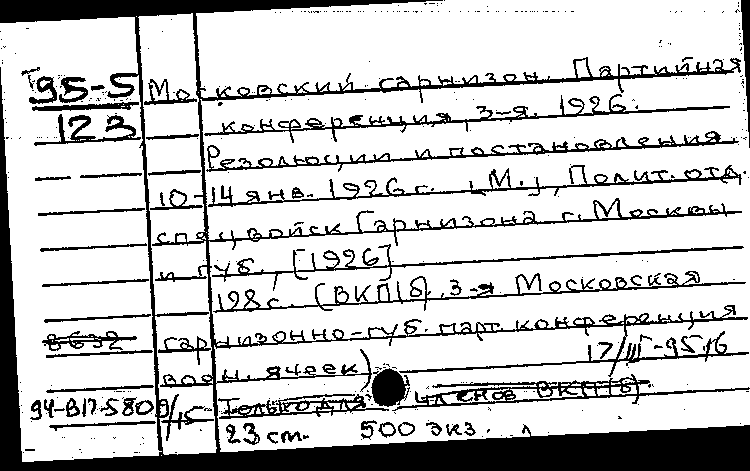 Т95-5
123
Московский гарнизон. Партийная
конференция, 3-я. 1926.
Резолюции и постановления.
10-14 янв. 1926 г. [М.], Полит. отд.
спец. войск Гарнизона г. Москвы
и губ., [1926]
198 с. (ВКП(б). 3-я Московская
8632 гарнизонно-губ. парт. конференция
воен. ячеек)
17/III-95
94-В17-5809/15 Только для членов ВКП(б)
23 ст. 500 экз.